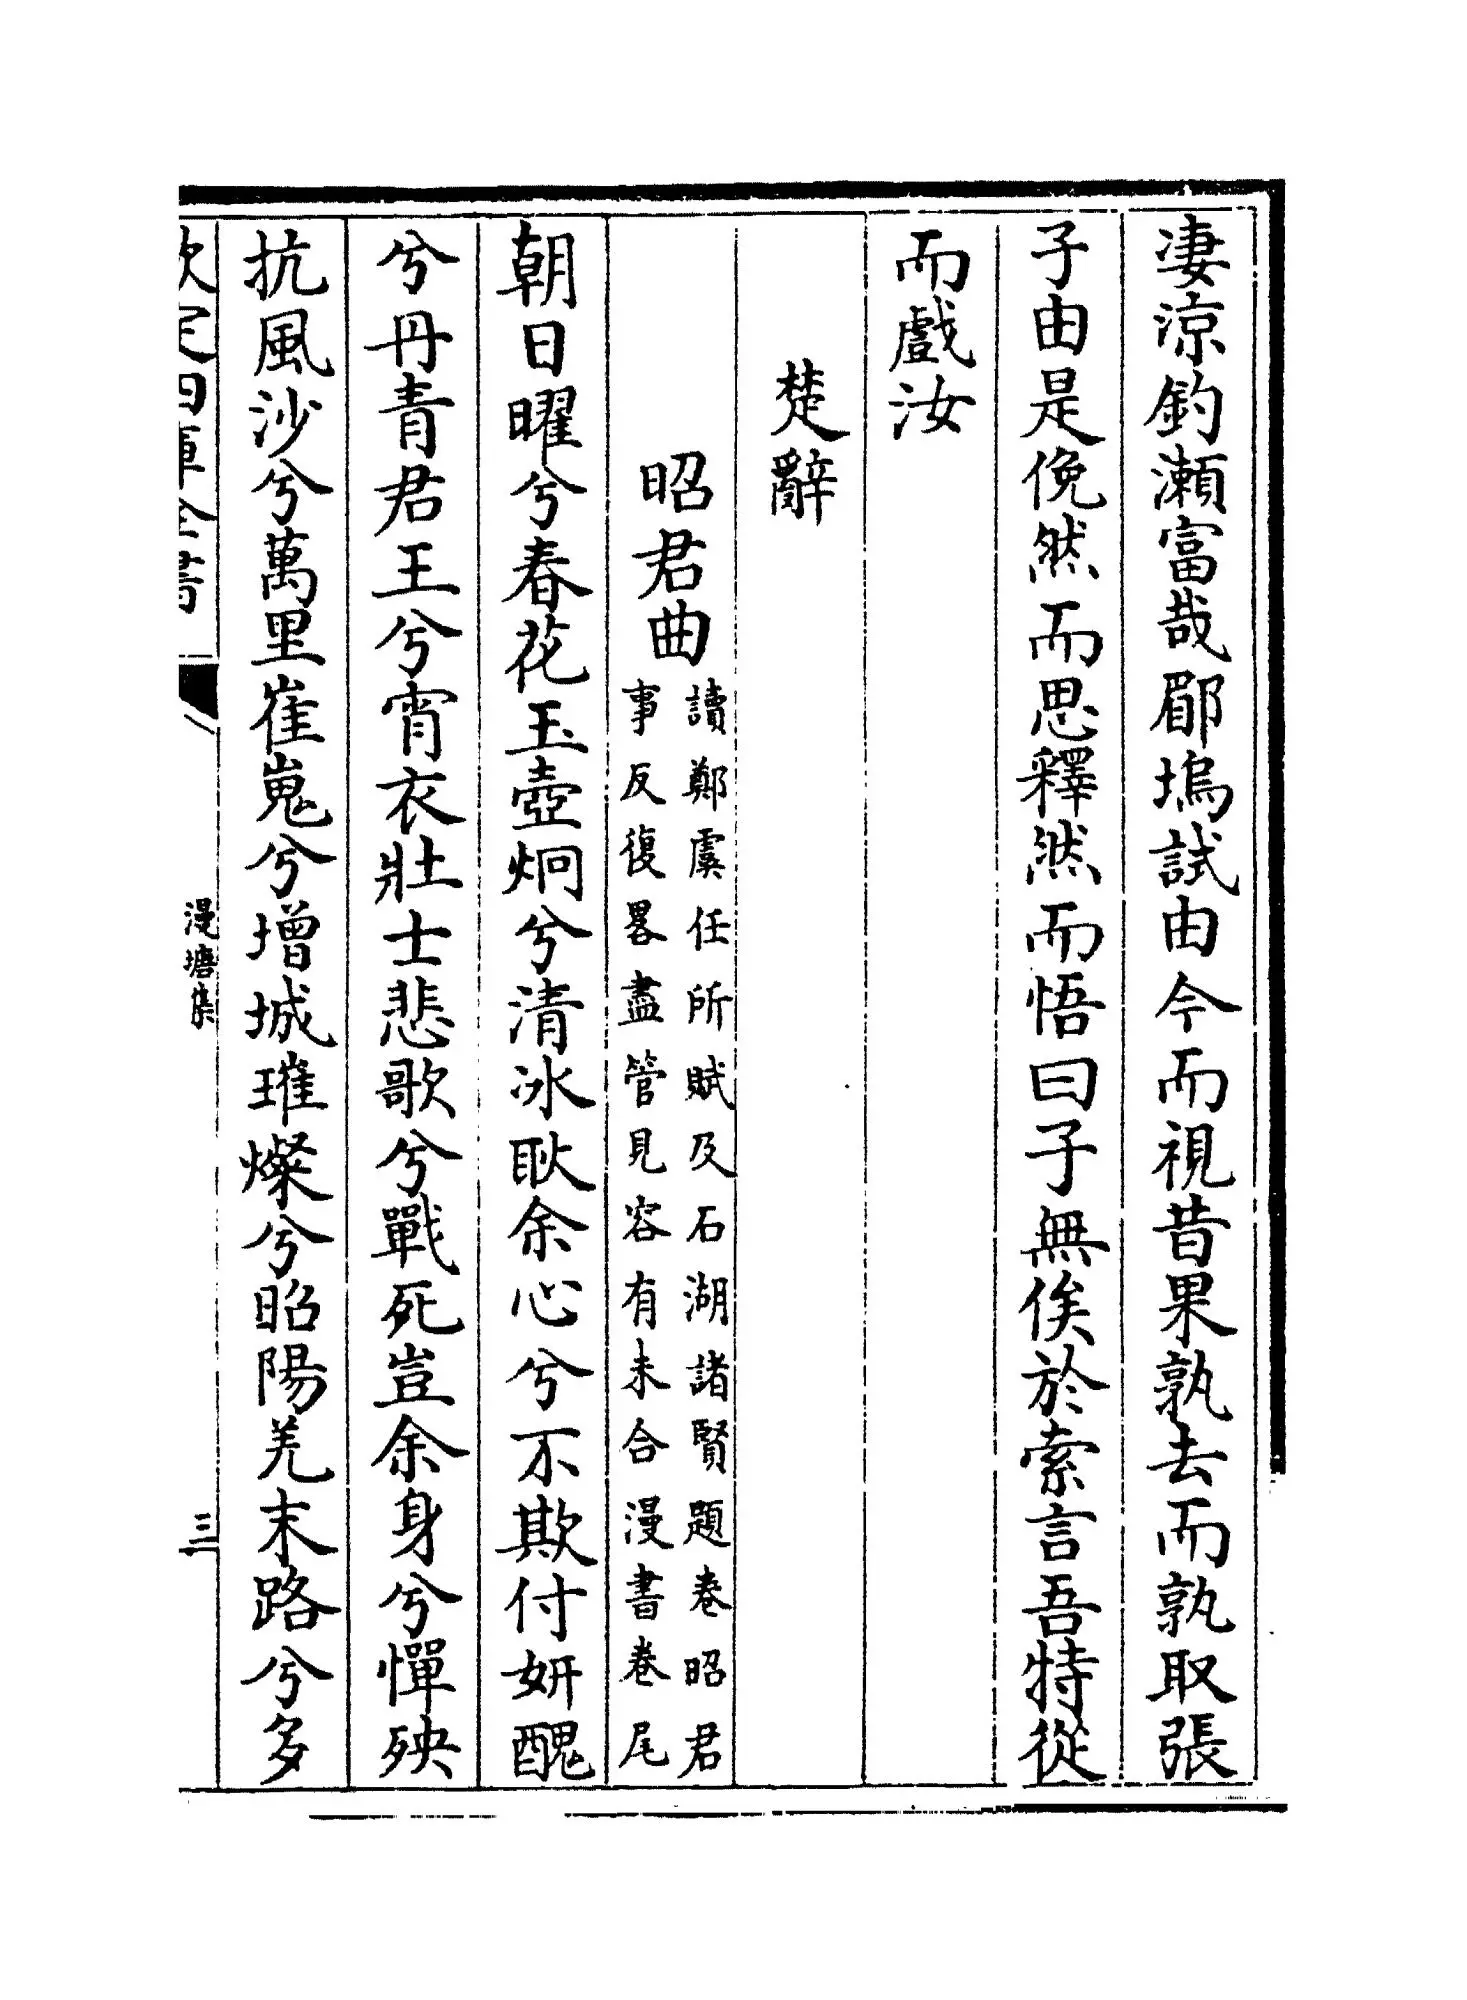 凄涼釣瀬富哉郿塢試由今而視昔果孰去而孰取張
子由是俛然而思釋然而悟曰子無俟於索言吾特從
而戲汝
楚辭
昭君曲
讀鄭虞任所賦及石湖諸賢題卷昭君
事反復畧盡管見容有未合漫書卷尾
朝日曜兮春花玉壺炯兮清冰耿余心兮不欺付妍醜
兮丹青君王兮宵衣壯士悲歌兮戰死豈余身兮憚殃
抗風沙兮萬里崔嵬兮增城璀燦兮昭陽羌末路兮多
欽定四庫全書
漫塘集
三